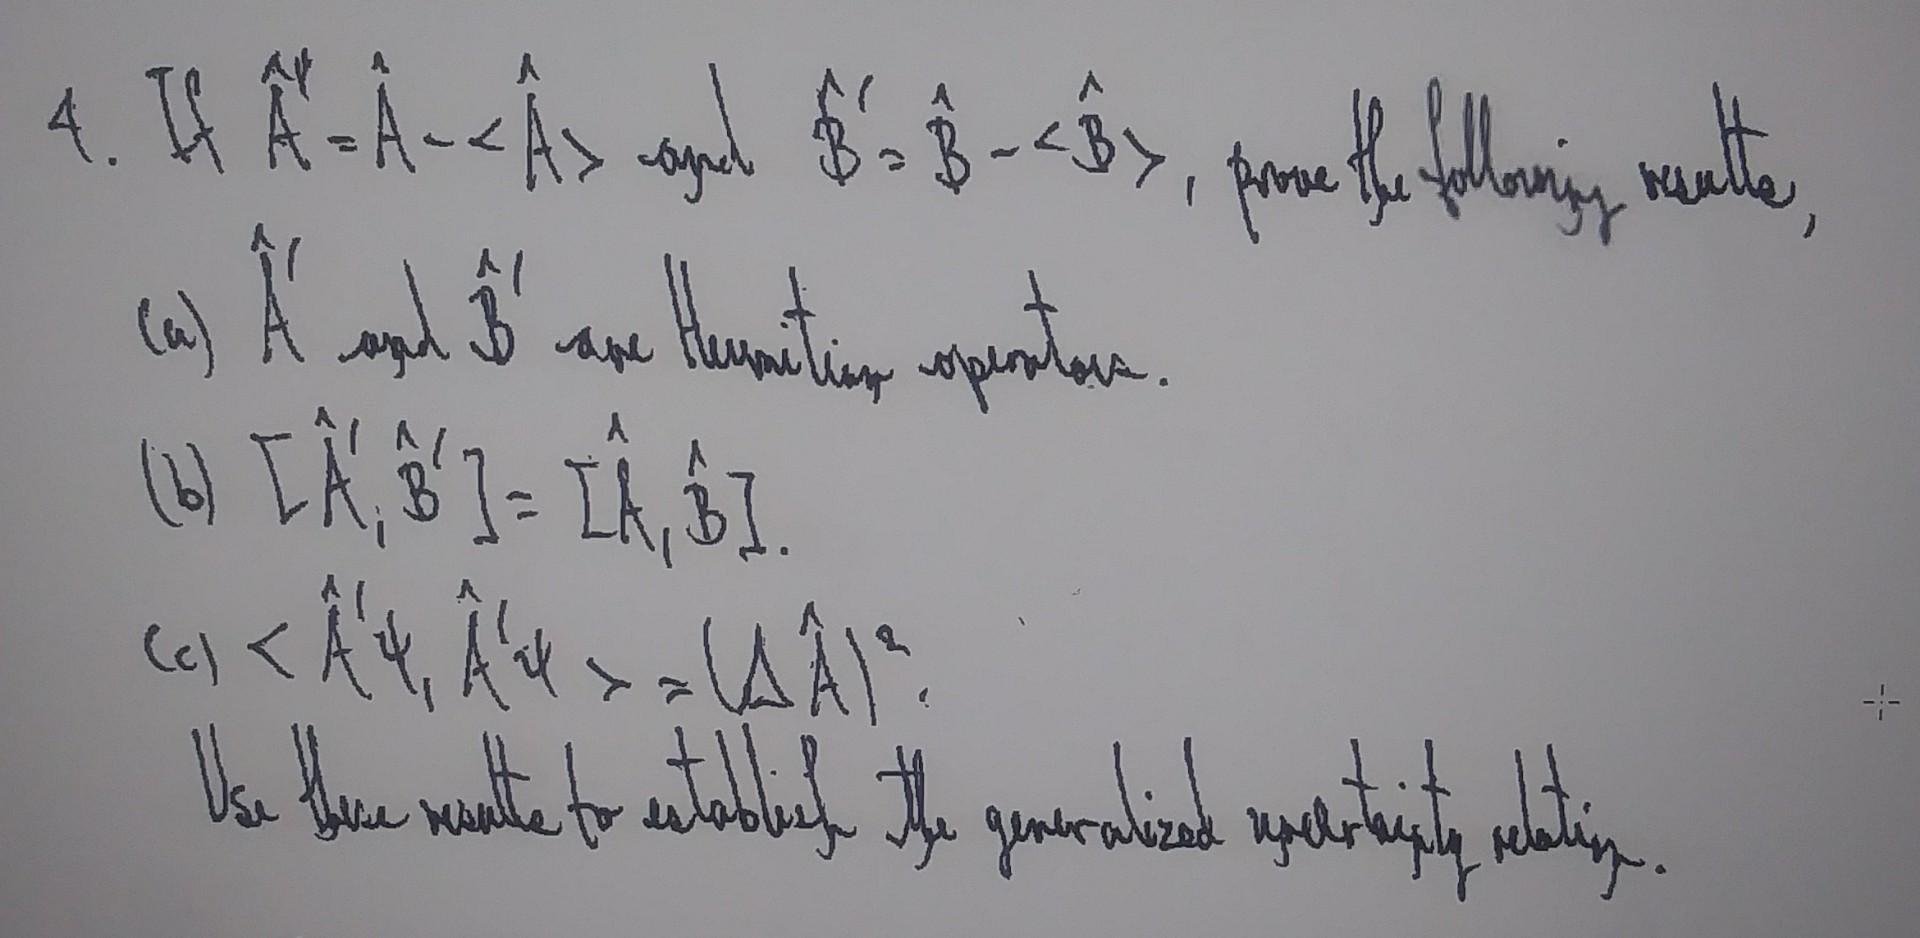 4. If Â' = Â - <Â> and B̂' = B̂ - <B̂>, prove the following results,
(a) Â' and B̂' are Hermitian operators.
(b) [Â', B̂'] = [Â, B̂].
(c) <Â'ψ, Â'ψ> = (ΔÂ)².
Use these results to establish the generalized uncertainty relation.